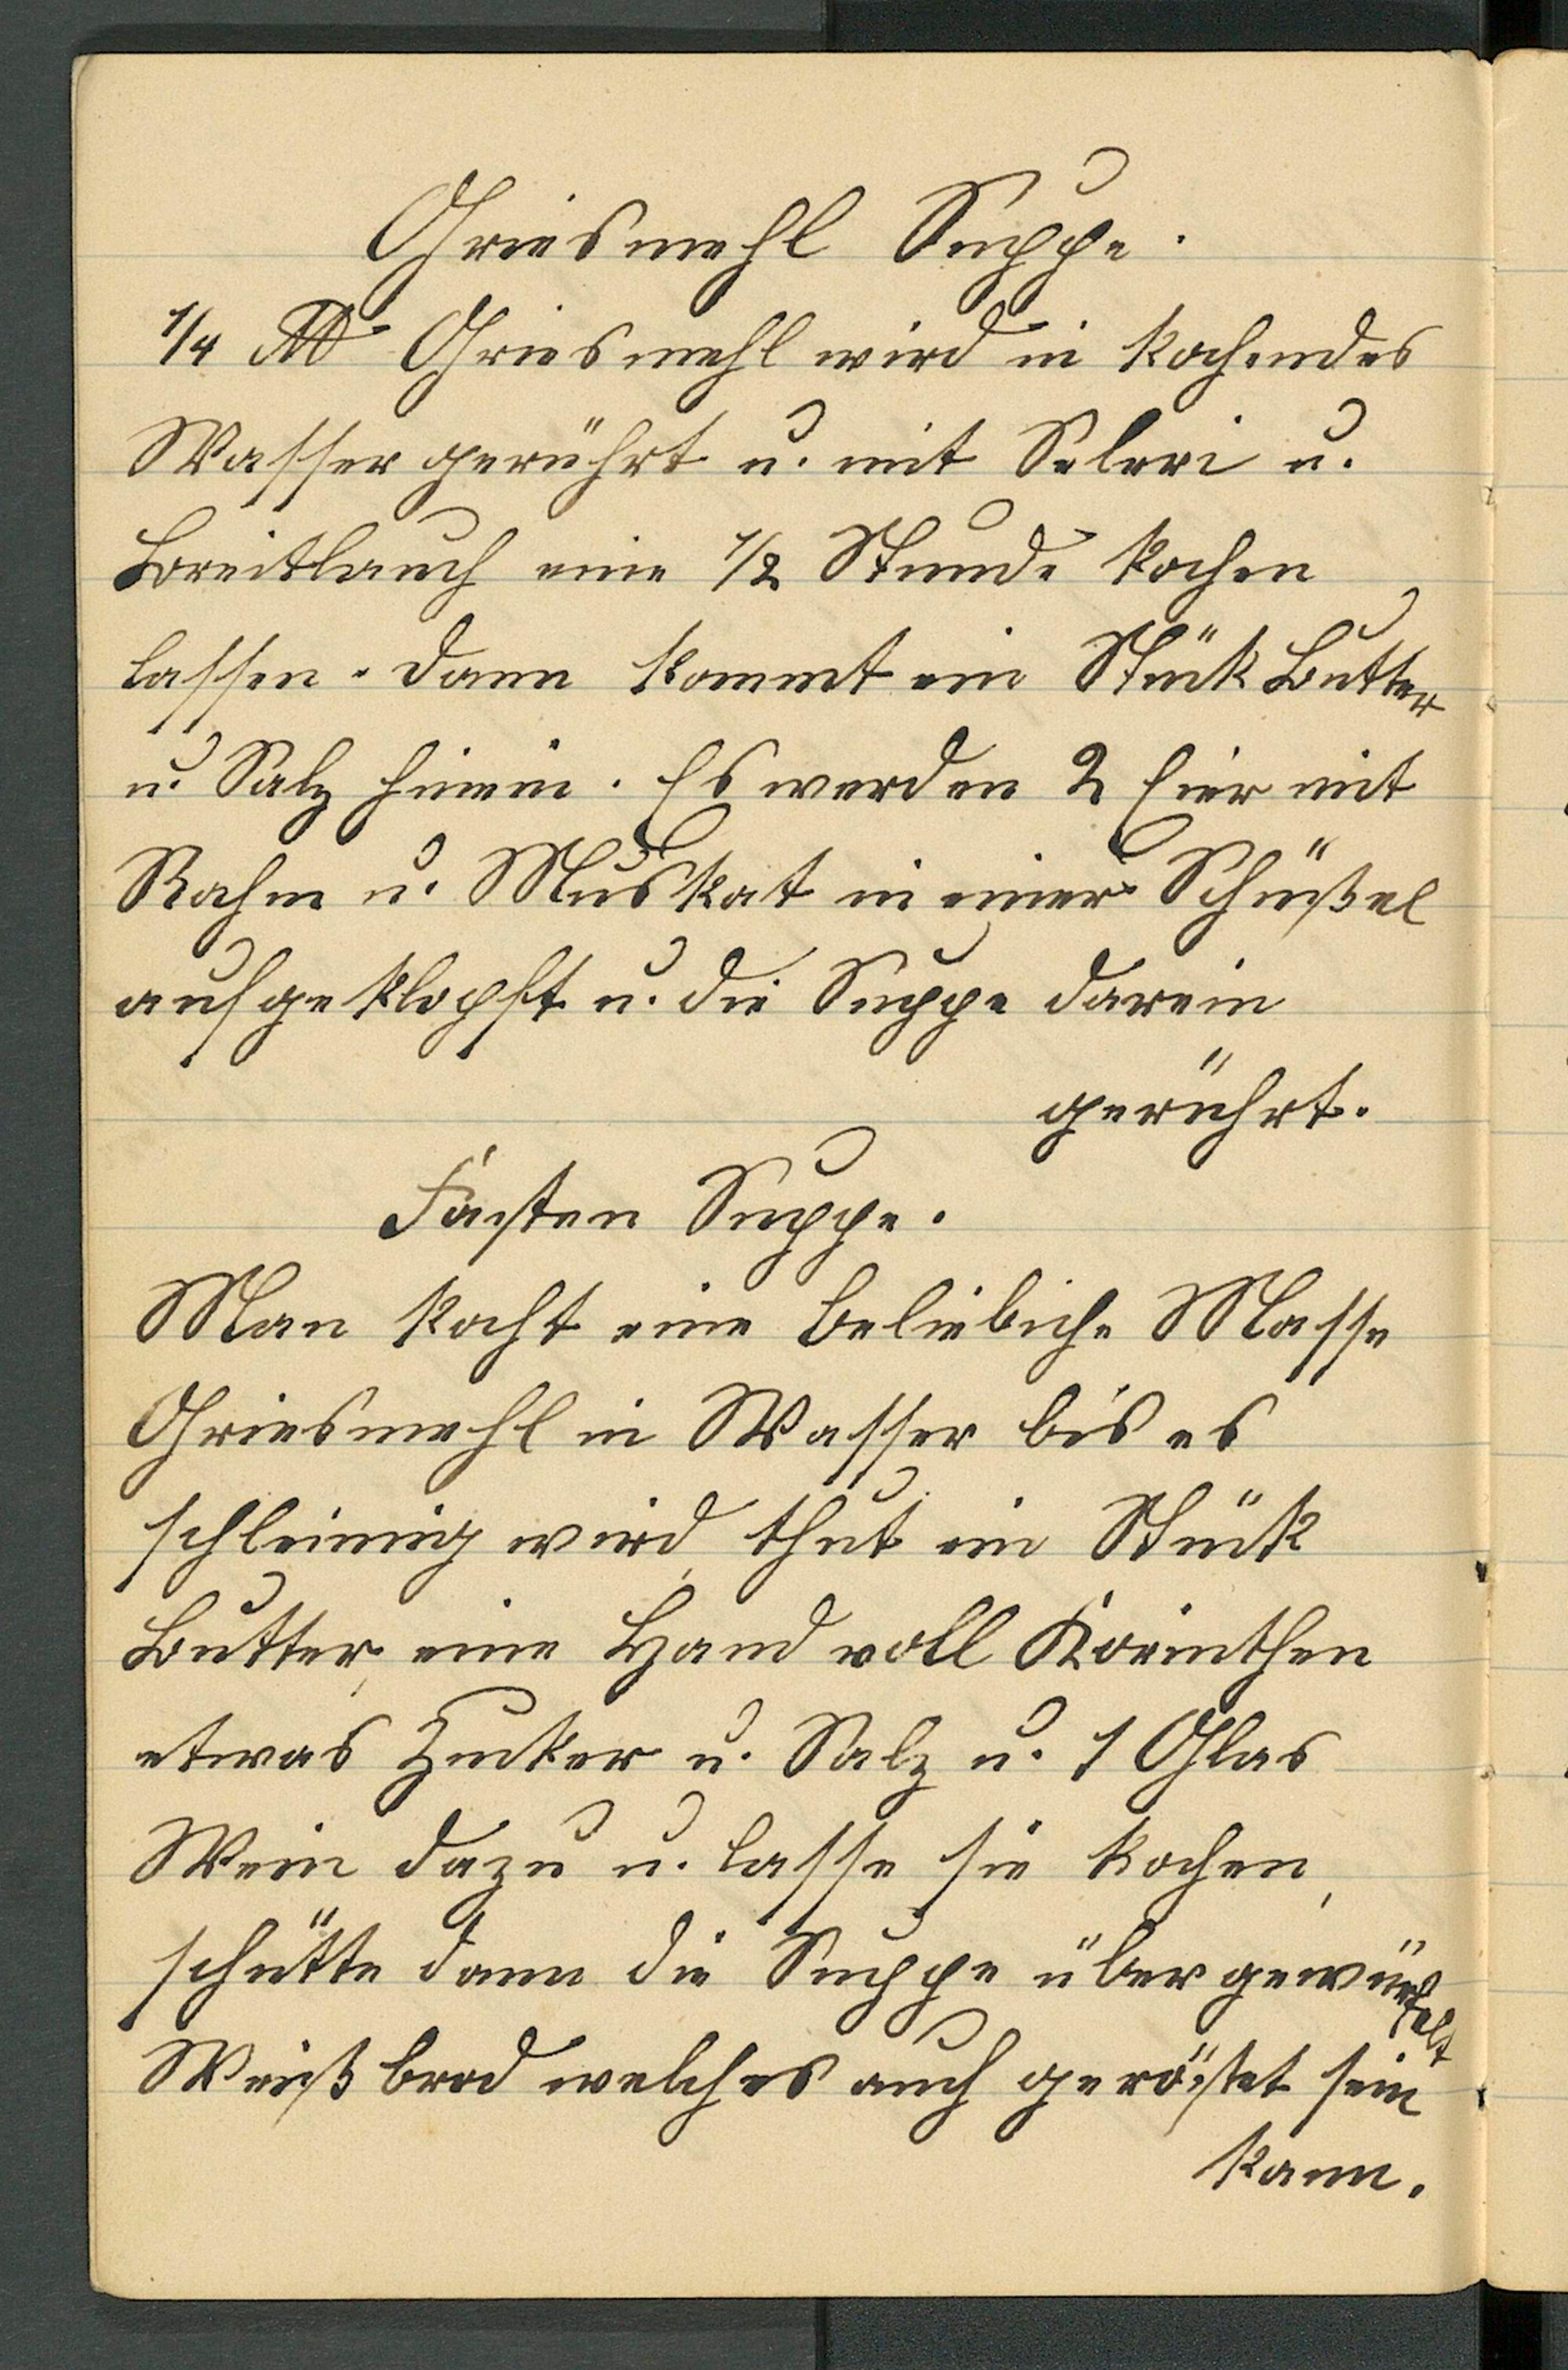 Griesmehl Suppe.
1/4 ℔ Griesmehl wird in kochendes
Wasser gerührt u. mit Seleri u.
Breitlauch eine 1/2 Stunde kochen
lassen. dann kommt ein Stük Butter
u. Salz hinein. Es werden 2 Eier mit
Rahm u. Muskat in einer Schüßel
aufgeklopft u. die Suppe darein
gerührt.
Fasten Suppe.
Man kocht eine beliebiche Masse
Griesmehl in Wasser bis es
schleimig wird, thut ein Stük
Butter, eine Hand voll Korinthen
etwas Zucker u. Salz u. 1 Glas
Wein dazu u. lasse sie kochen,
schütte dann die Suppe über gewürfelt
Weißbrod welches auch geröstet sein
kann.